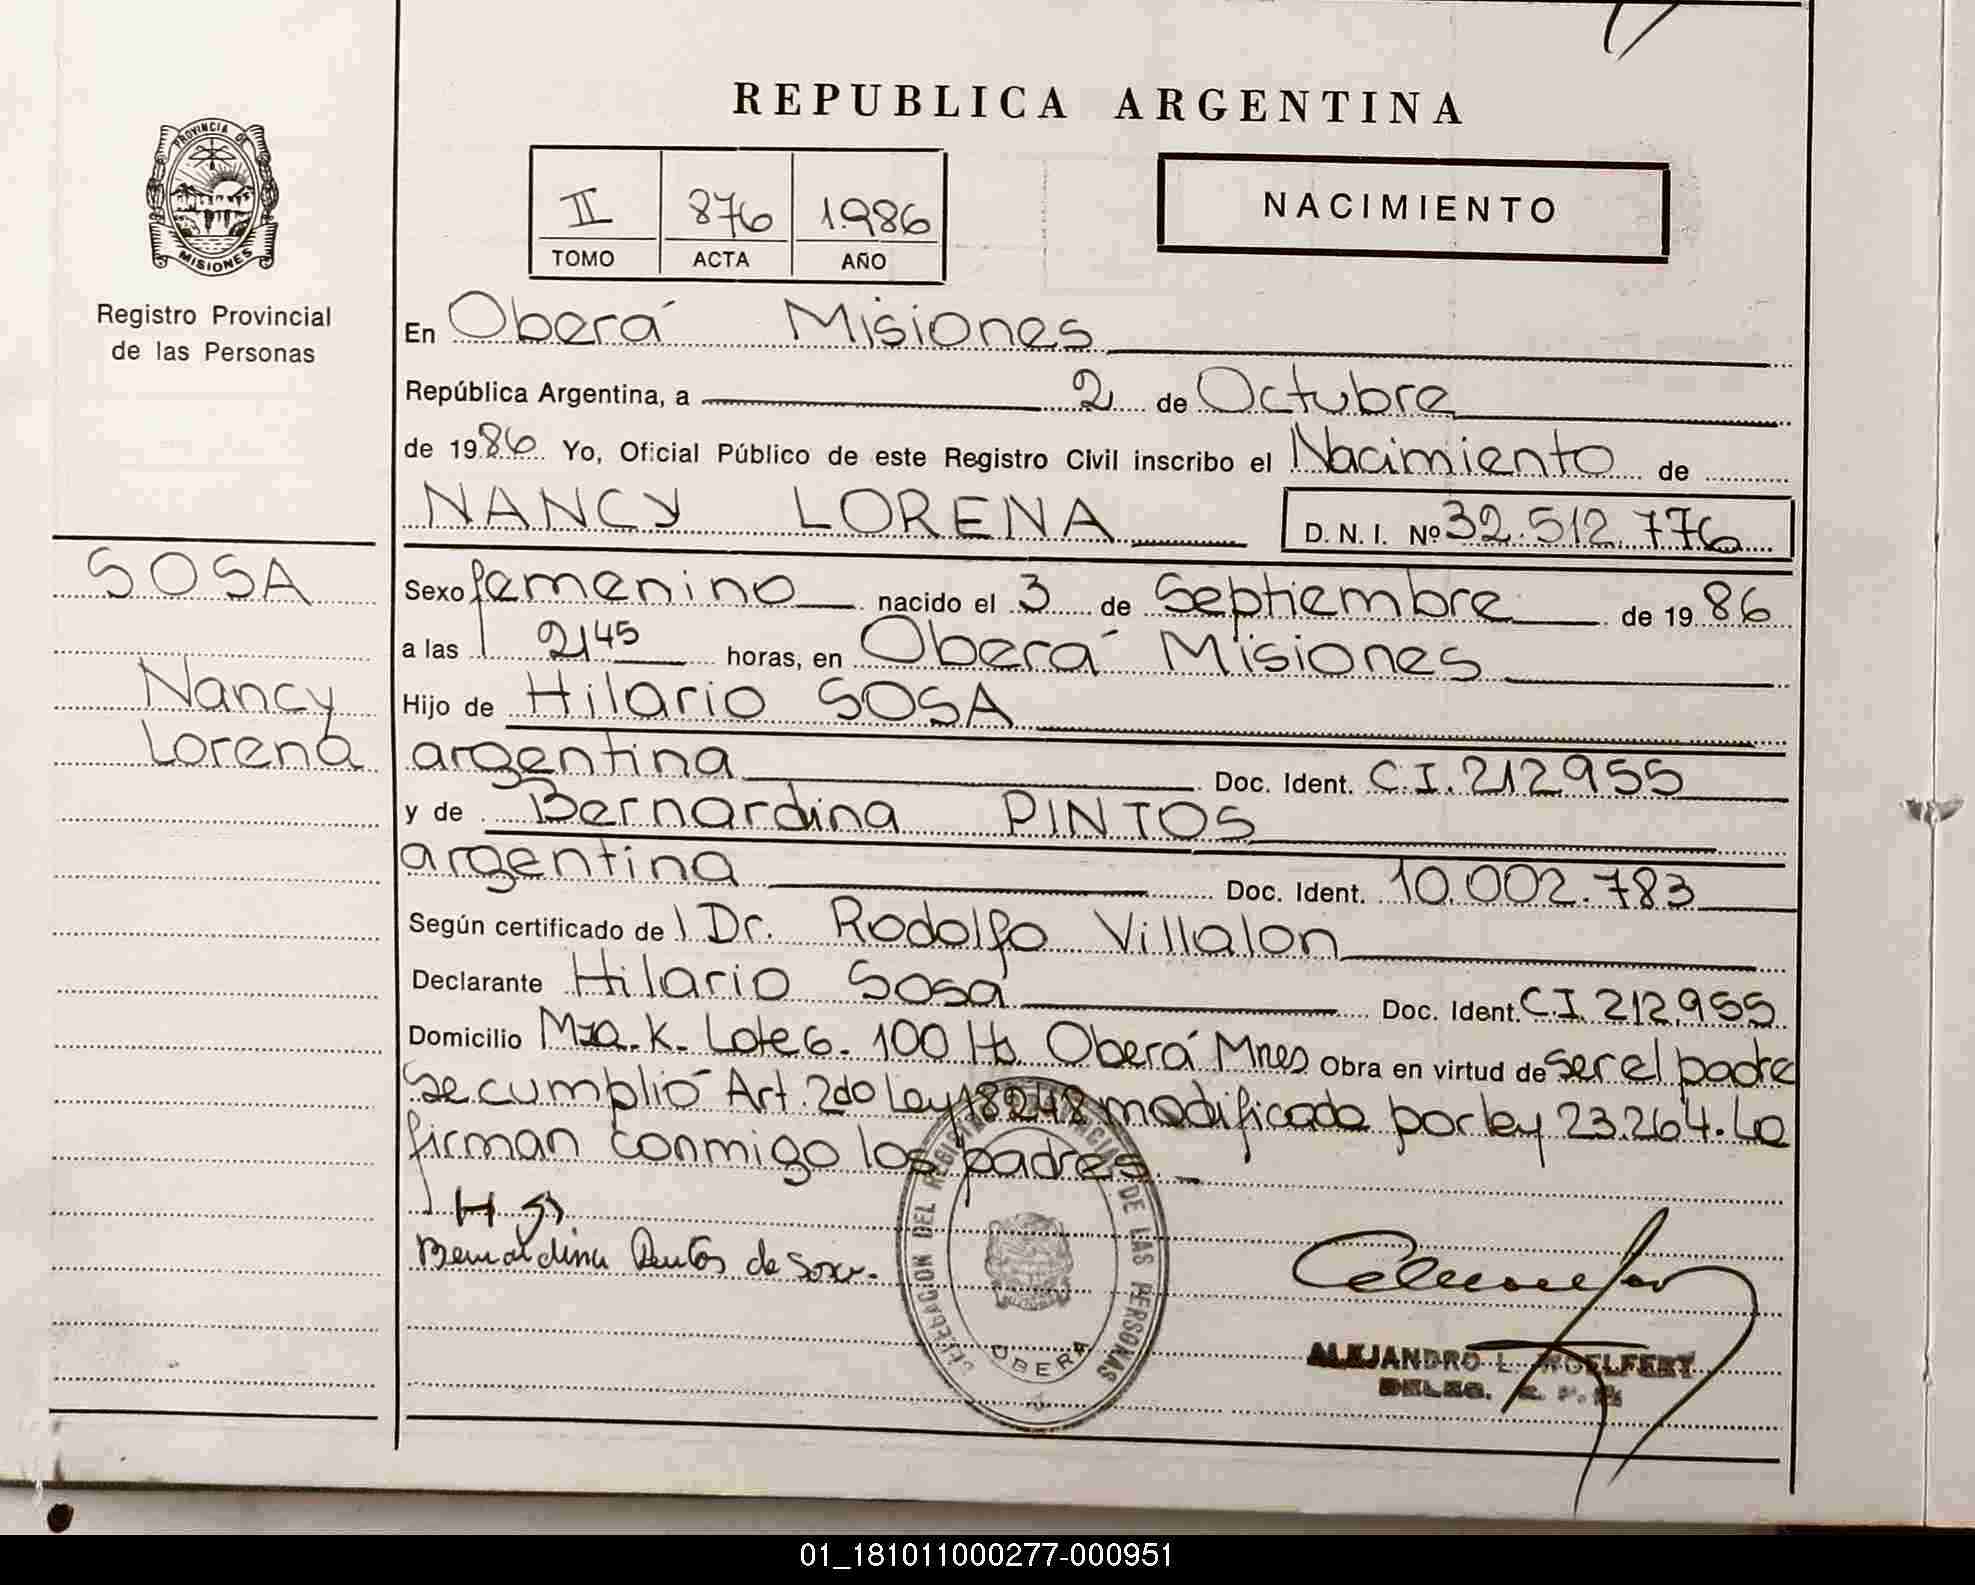 REPUBLICA ARGENTINA
PROVINCIA DE
MISIONES
Registro Provincial
de las Personas
II 876 1.986
TOMO ACTA AÑO
NACIMIENTO
En Oberá Misiones
República Argentina, a 2 de Octubre
de 1986 Yo, Oficial Público de este Registro Civil inscribo el Nacimiento de
NANCY LORENA D. N. I. Nº 32.512.776
SOSA
Nancy
Lorena
Sexo femenino nacido el 3 de Septiembre de 1986
a las 21 45 horas, en Oberá Misiones
Hijo de Hilario SOSA
argentina Doc. Ident. C.I. 212955
y de Bernardina PINTOS
argentina Doc. Ident. 10.002.783
Según certificado de Dr. Rodolfo Villalon
Declarante Hilario Sosa Doc. Ident. C.I. 212.955
Domicilio Mza. K. Lote 6. 100 Hs Oberá Mnes Obra en virtud de ser el padre
Se cumplió Art. 2do Ley 18248 modificada por ley 23.264. La
firman conmigo los padres.
H S
Bernardina Pintos de Sosa.
DELEGACION DEL REGISTRO PROVINCIAL DE LAS PERSONAS
OBERA
ALEJANDRO L. WOELFERT
DELEG.
01_181011000277-000951